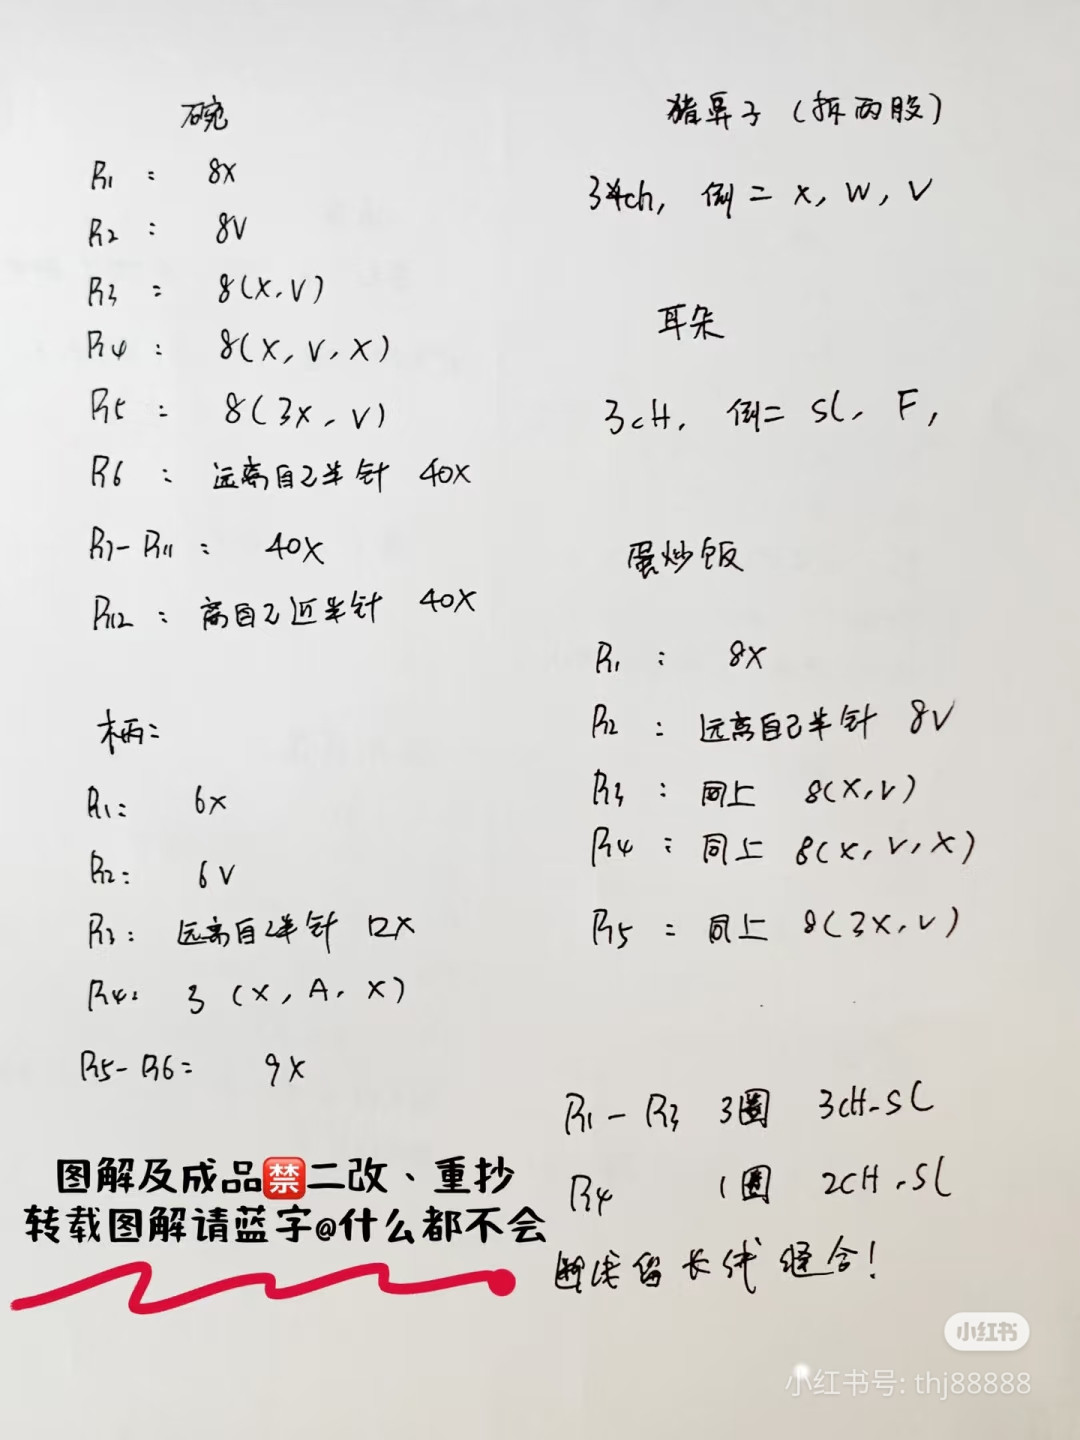 碗
R1： 8X
R2： 8V
R3： 8(X，V)
R4： 8(X，V，X)
R5： 8(3X，V)
R6： 远离自己半针 40X
R7-R11： 40X
R12： 离自己近半针 40X
柄：
R1： 6X
R2： 6V
R3： 远离自己半针 12X
R4： 3 (X，A，X)
R5-R6： 9X
猪鼻子（拆两股）
3ch，倒二X，W，V
耳朵
3cH，倒二 SL，F，
蛋炒饭
R1： 8X
R2： 远离自己半针 8V
R3： 同上 8(X，V)
R4： 同上 8(X，V，X)
R5： 同上 8(3X，V)
R1-R3 3圈 3cH-SL
R4 1圈 2CH，SL
断线留长线缝合！
图解及成品🈲二改、重抄
转载图解请蓝字@什么都不会
小红书
小红书号: thj88888